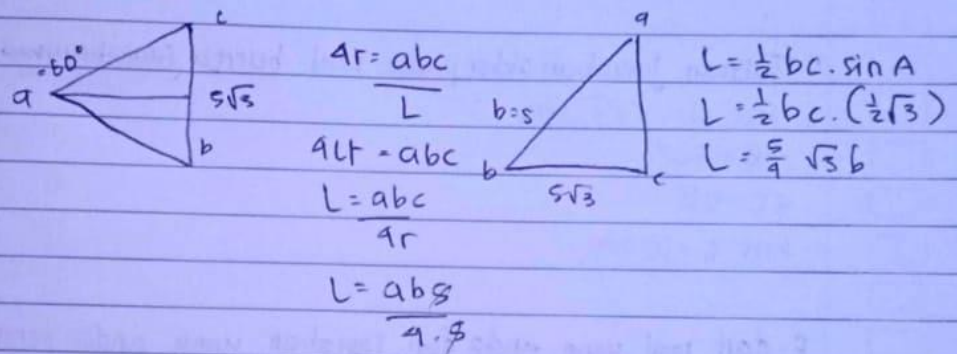 c
60°
a
5√3
b
4r = abc
L
4Lr = abc
L = abc
4r
L = ab8
4 8
a
b=5
b
5√3
c
L = ½ bc. sin A
L = ½ bc. (½√3)
L = 5/4 √3 b